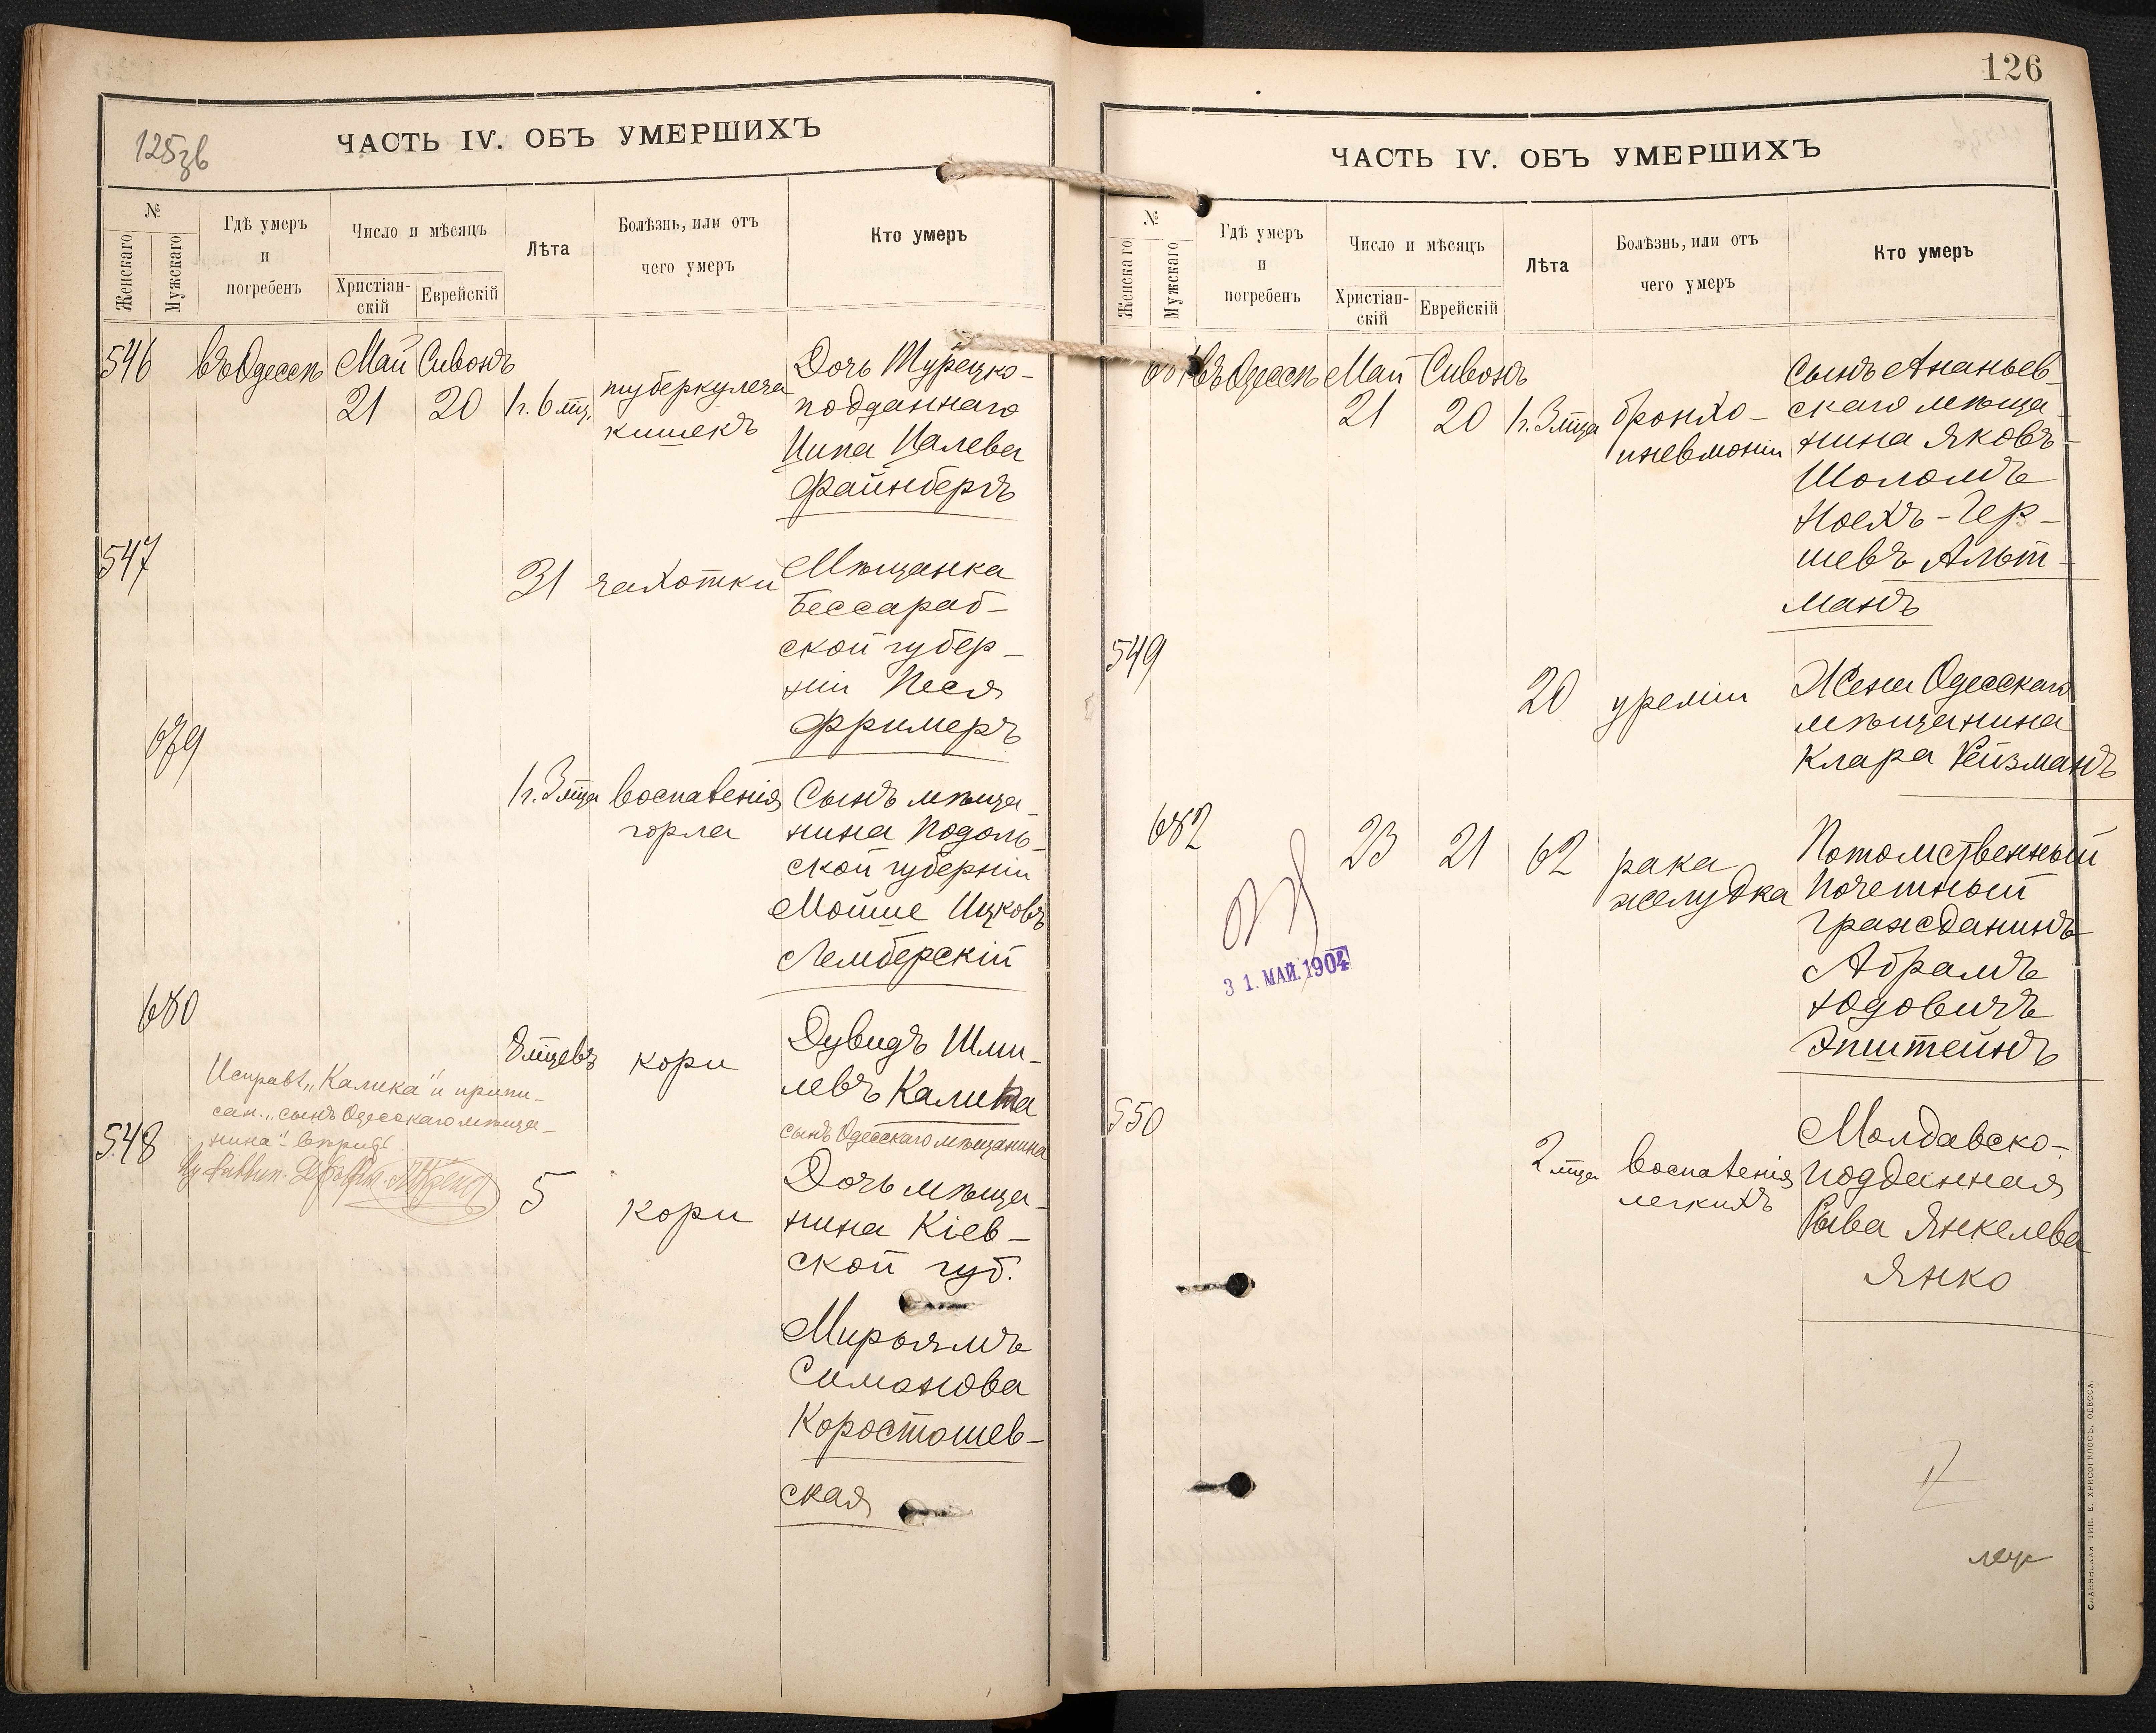 125зв
ЧАСТЬ IV. ОБЪ УМЕРШИХЪ
№
Женскаго
Мужскаго
Гдѣ умеръ
и
погребенъ
Число и мѣсяцъ
Христіан-
скій
Еврейскій
Лѣта
Болѣзнь, или отъ
чего умеръ
Кто умеръ
546 въ Одессѣ Май Сивонъ
21 20 1 г. 6 мц. туберкулеза
кишекъ
Дочь Турецко-
подданнаго
Ципа Цалева
Файнбергъ
547
31 чахотки
Мѣщанка
Бессараб-
ской губер-
ніи Песя
Фримеръ
679
1 г. 3 мца воспаленія
горла
Сынъ мѣща-
нина Подоль-
ской губерніи
Мойше Ицковъ
Лемберскій
680
8 мцевъ кори
Дувидъ Шми-
левъ Калика
сынъ Одесскаго мѣщанина
Исправл. „Калика" и припи-
сан. „сынъ Одесскаго мѣща-
нина"
548
5 кори
Дочь мѣща-
нина Кіев-
ской губ.
Мирьямъ
Симонова
Коростошев-
ская
126
ЧАСТЬ IV. ОБЪ УМЕРШИХЪ
№
Женскаго
Мужскаго
Гдѣ умеръ
и
погребенъ
Число и мѣсяцъ
Христіан-
скій
Еврейскій
Лѣта
Болѣзнь, или отъ
чего умеръ
Кто умеръ
681 въ Одессѣ Май Сивонъ
21 20 1 г. 3 мца бронхо-
пневмоніи
Сынъ Ананьев-
скаго мѣща-
нина Яковъ-
Шоломъ
Ноехъ-Гер-
шевъ Альт-
манъ
549
20 уреміи
Жена Одесскаго
мѣщанина
Клара Рейзманъ
682
23 21 62 рака
желудка
Потомственный
Почетный
Гражданинъ
Абрамъ
Юдовичъ
Эпштейнъ
31. МАЙ. 1904
550
2 мца воспаленія
легкихъ
Молдавско-
подданная
Рыва Янкелева
Янко
СЛАВЯНСКАЯ ТИП. Е. ХРИСОГЕЛОСЪ, ОДЕССА.